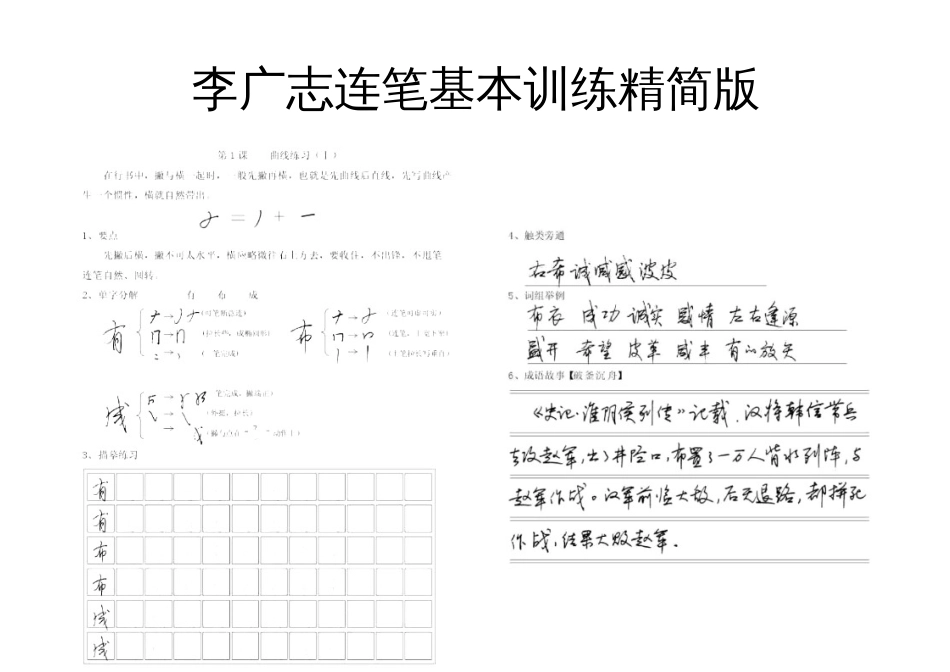 李广志连笔基本训练精简版
第1课 曲线练习(丨)
在行书中,撇与横一起时,一般先撇再横,也就是先曲线后直线,先写曲线产
生一个惯性,横就自然带出。
= 丿 + 一
1、要点
先撇后横,撇不可太水平,横应略微往右上方去,要收住,不出锋,不甩笔
连笔自然、圆转。
2、单字分解 有 布 成
有
布
成
(连笔可虚可实)
(一笔完成)
3、描摹练习
有
有
布
布
成
成
4、触类旁通
右希诚咸感波皮
5、词组举例
布衣 成功 诚实 感情 左右逢源
盛开 希望 皮革 咸丰 有的放矢
6、成语故事【破釜沉舟】
《史记·淮阴侯列传》记载,汉将韩信带兵
去攻赵军,出了井陉口,布置了一万人背水列阵,与
赵军作战。汉军前临大敌,后无退路,都拼死
作战,结果大败赵军.